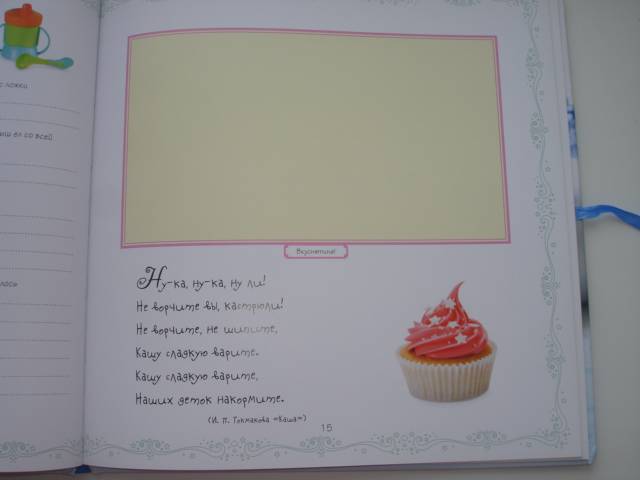 с ложки
ыш ел со всей
лось
Вкуснятина!
Ну-ка, ну-ка, ну ли!
Не ворчите вы, кастрюли!
Не ворчите, не шипите,
Кашу сладкую варите.
Кашу сладкую варите,
Наших деток накормите.
(И. П. Токмакова «Каша»)
15